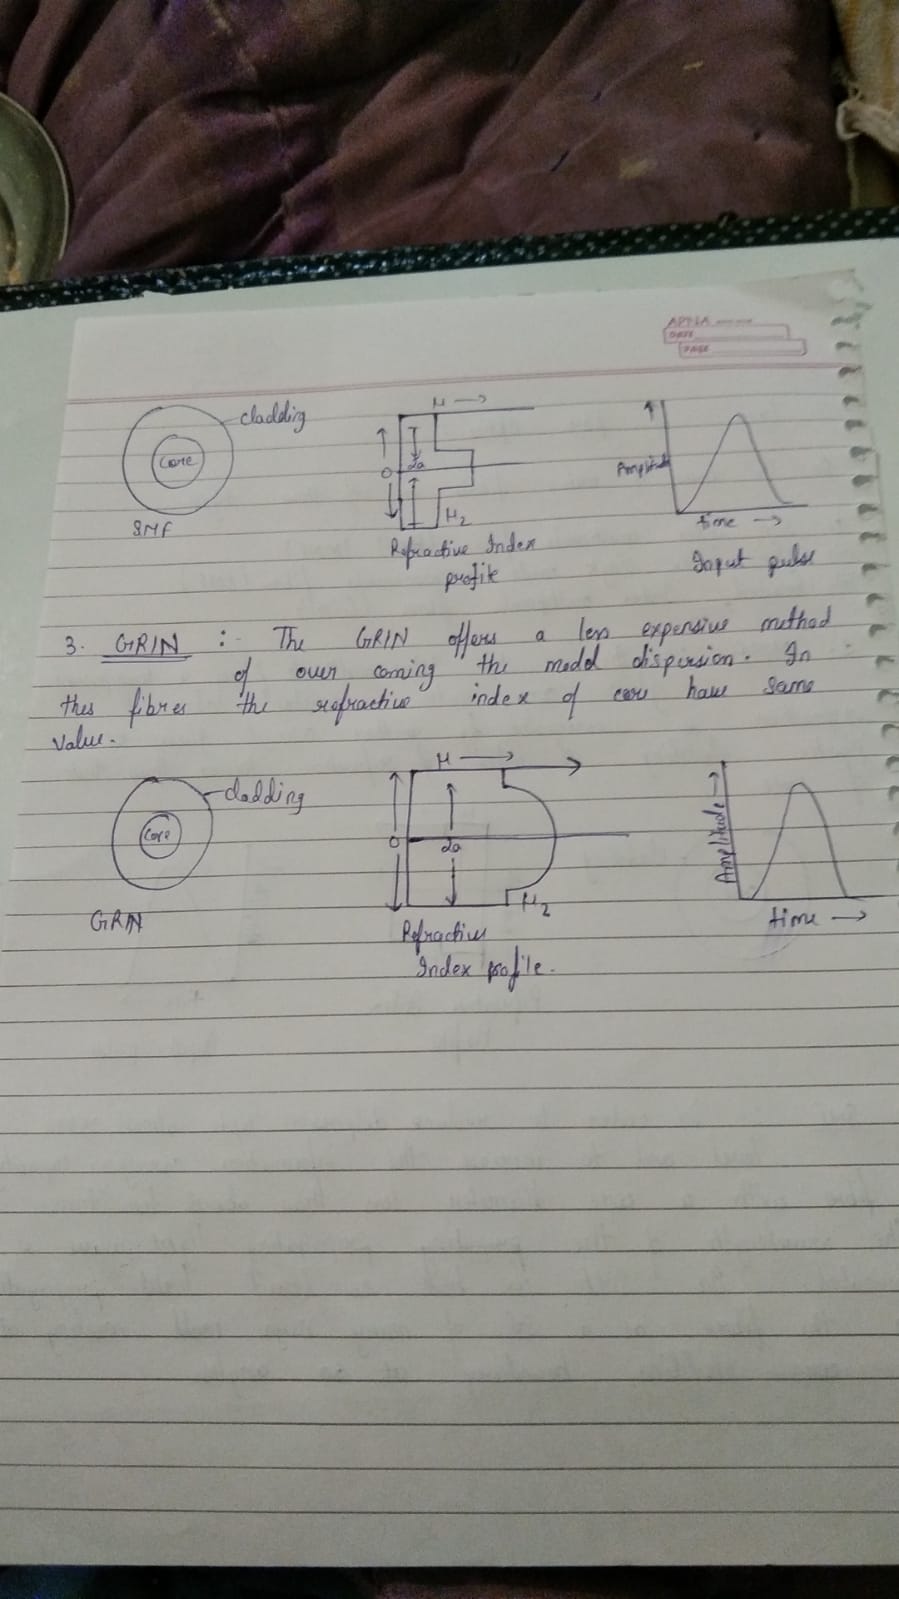 APNA
DATE
PAGE
cladding
Core
SMF
μ →
0
2a
μ2
Refractive Index
profile
Amplitude
time →
Input pulse
3. GRIN :- The GRIN offers a less expensive method
of over coming the modal dispersion. In
this fibres the refractive index of core have same
value.
cladding
Core
GRIN
μ →
0
2a
μ2
Refractive
Index profile.
Amplitude →
time →